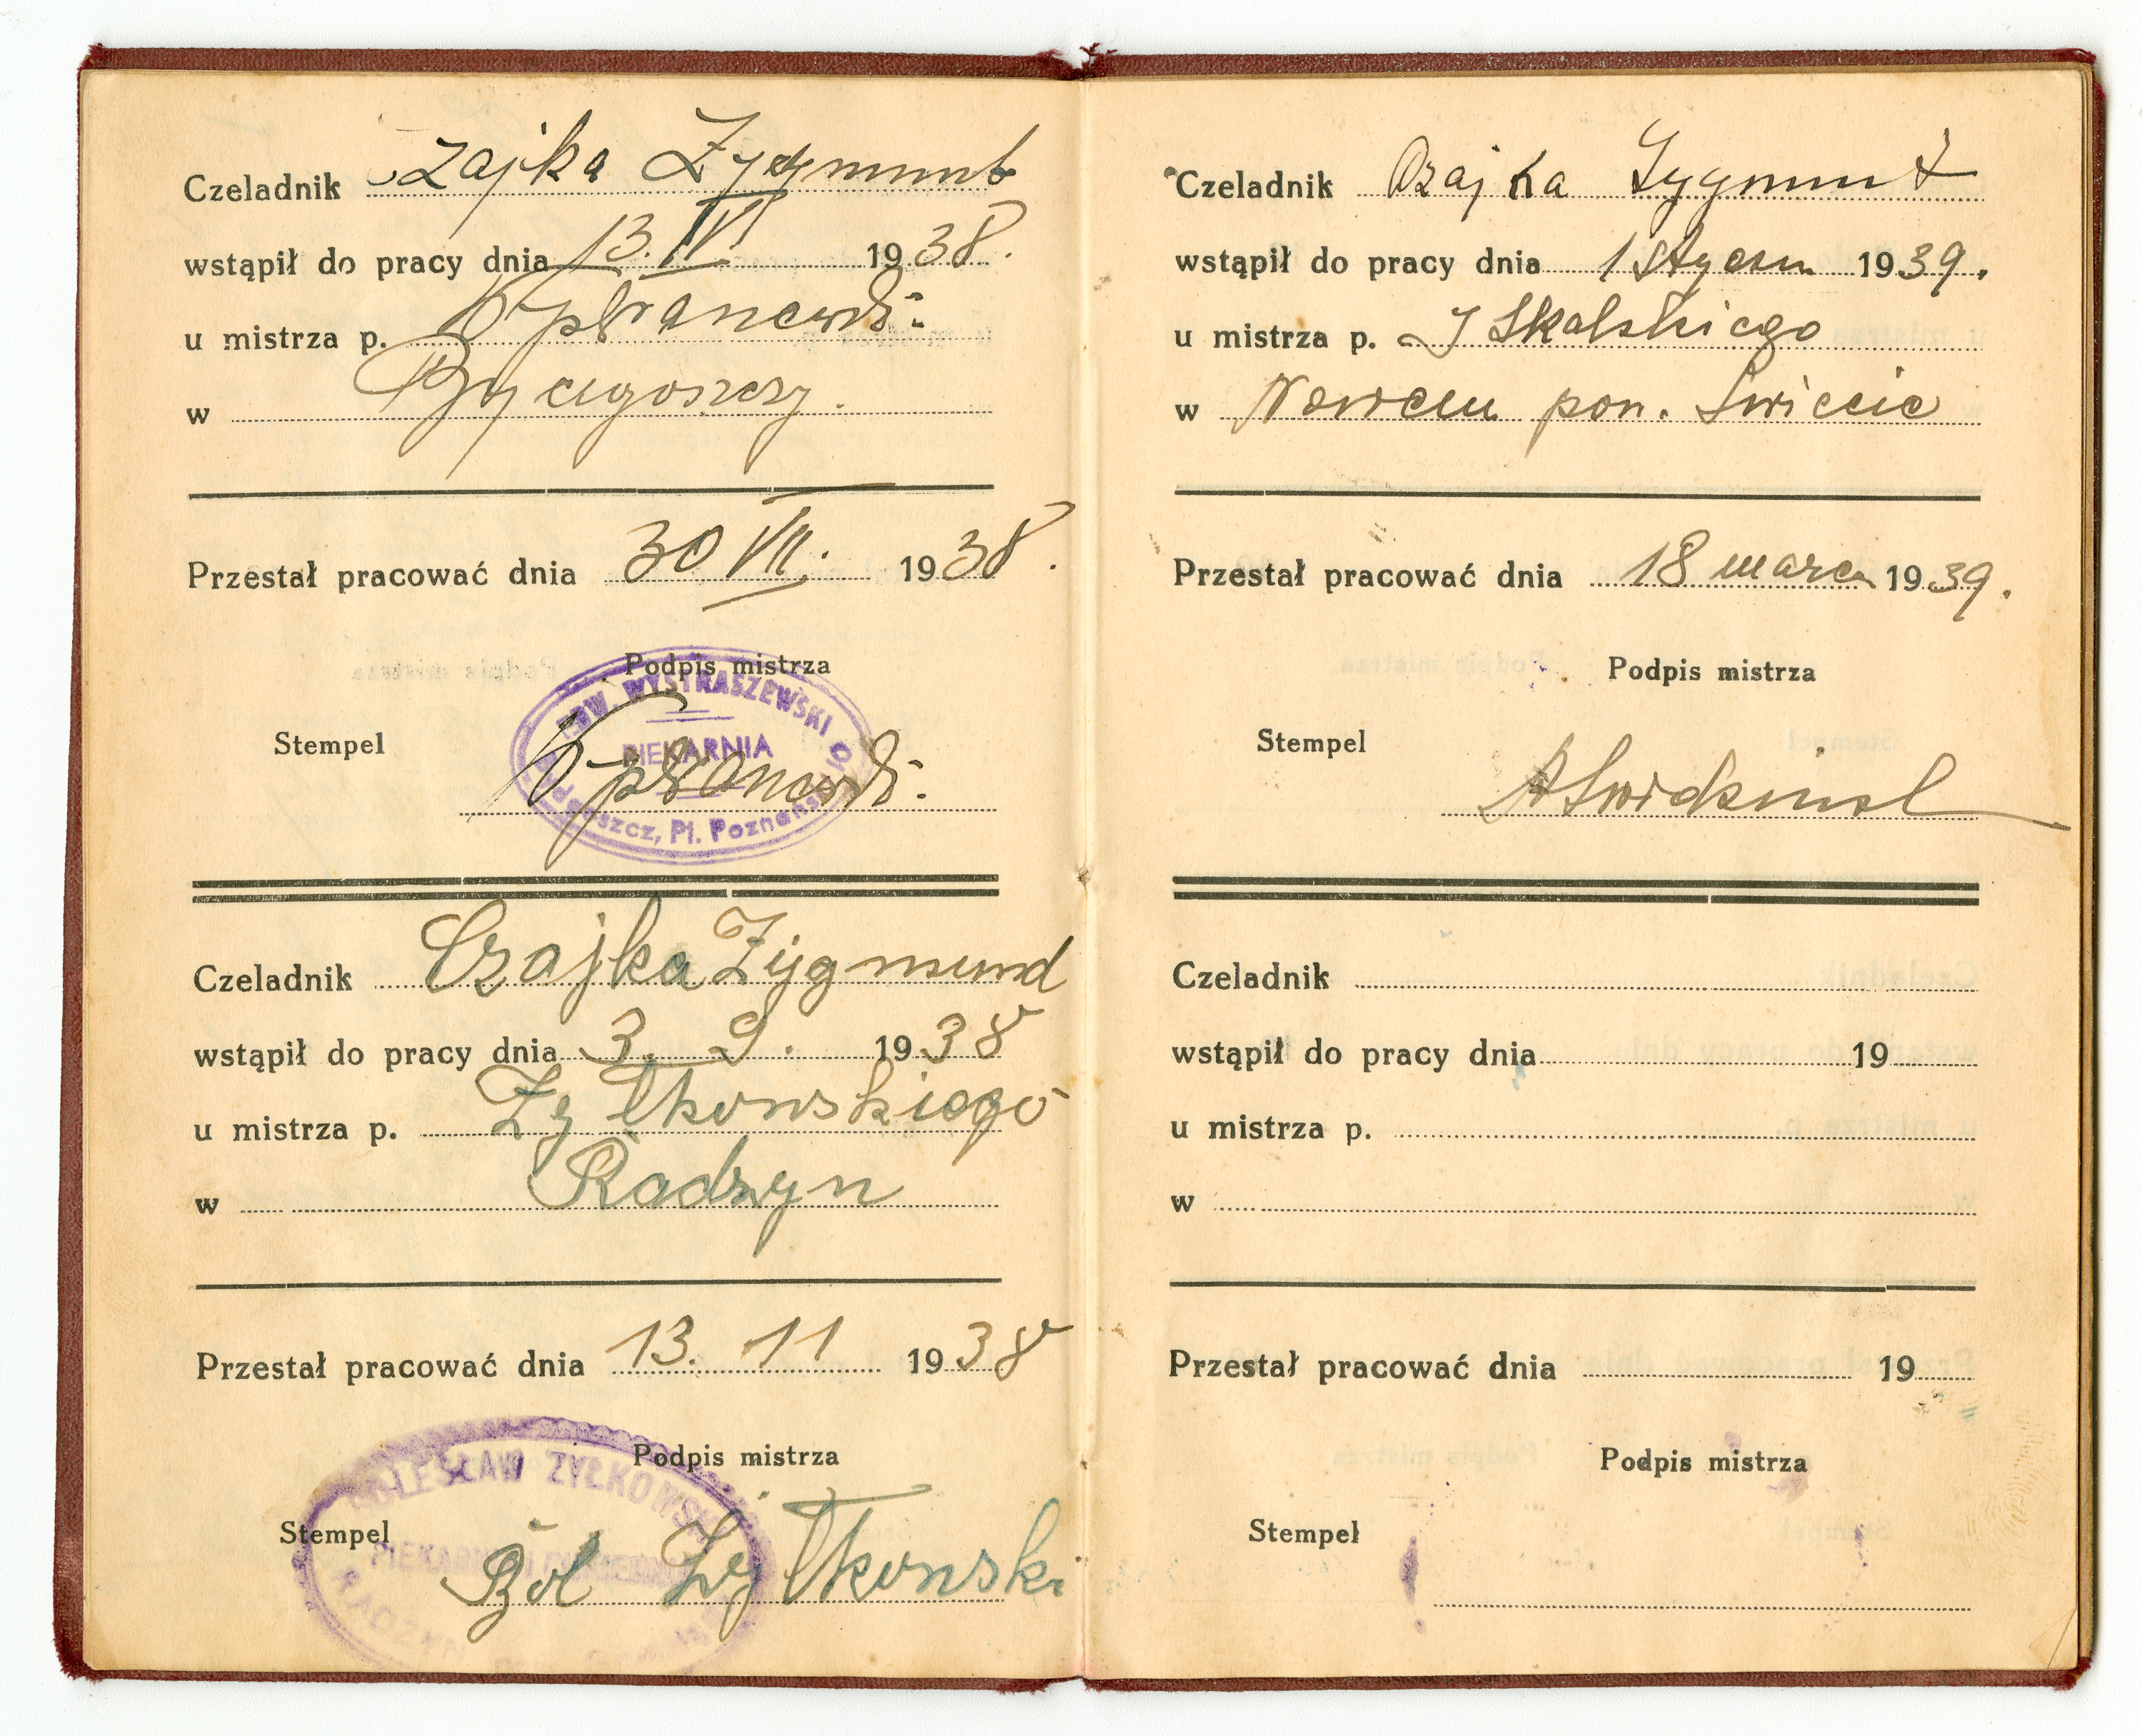 Czeladnik Czajka Zygmunt
wstąpił do pracy dnia 13. IV 1938.
u mistrza p.
w Bydgoszczy.
Przestał pracować dnia 30 VII. 1938.
Podpis mistrza
EDW. WYSTRASZEWSKI
PIEKARNIA
Bydgoszcz, Pl. Poznański
Stempel
Czeladnik Czajka Zygmund
wstąpił do pracy dnia 3. 9. 1938
u mistrza p. Żyłkowskiego
w Radzyn
Przestał pracować dnia 13. 11 1938
Podpis mistrza
BOLESŁAW ŻYŁKOWSKI
Stempel
PIEKARNIA
RADZYN
Bol Żyłkowski
Czeladnik Czajka Zygmunt
wstąpił do pracy dnia 1 Styczn 1939.
u mistrza p. J Skalskiego
w pow. Świecie
Przestał pracować dnia 18 marca 1939.
Podpis mistrza
Stempel
Czeladnik
wstąpił do pracy dnia 19
u mistrza p.
w
Przestał pracować dnia 19
Podpis mistrza
Stempel